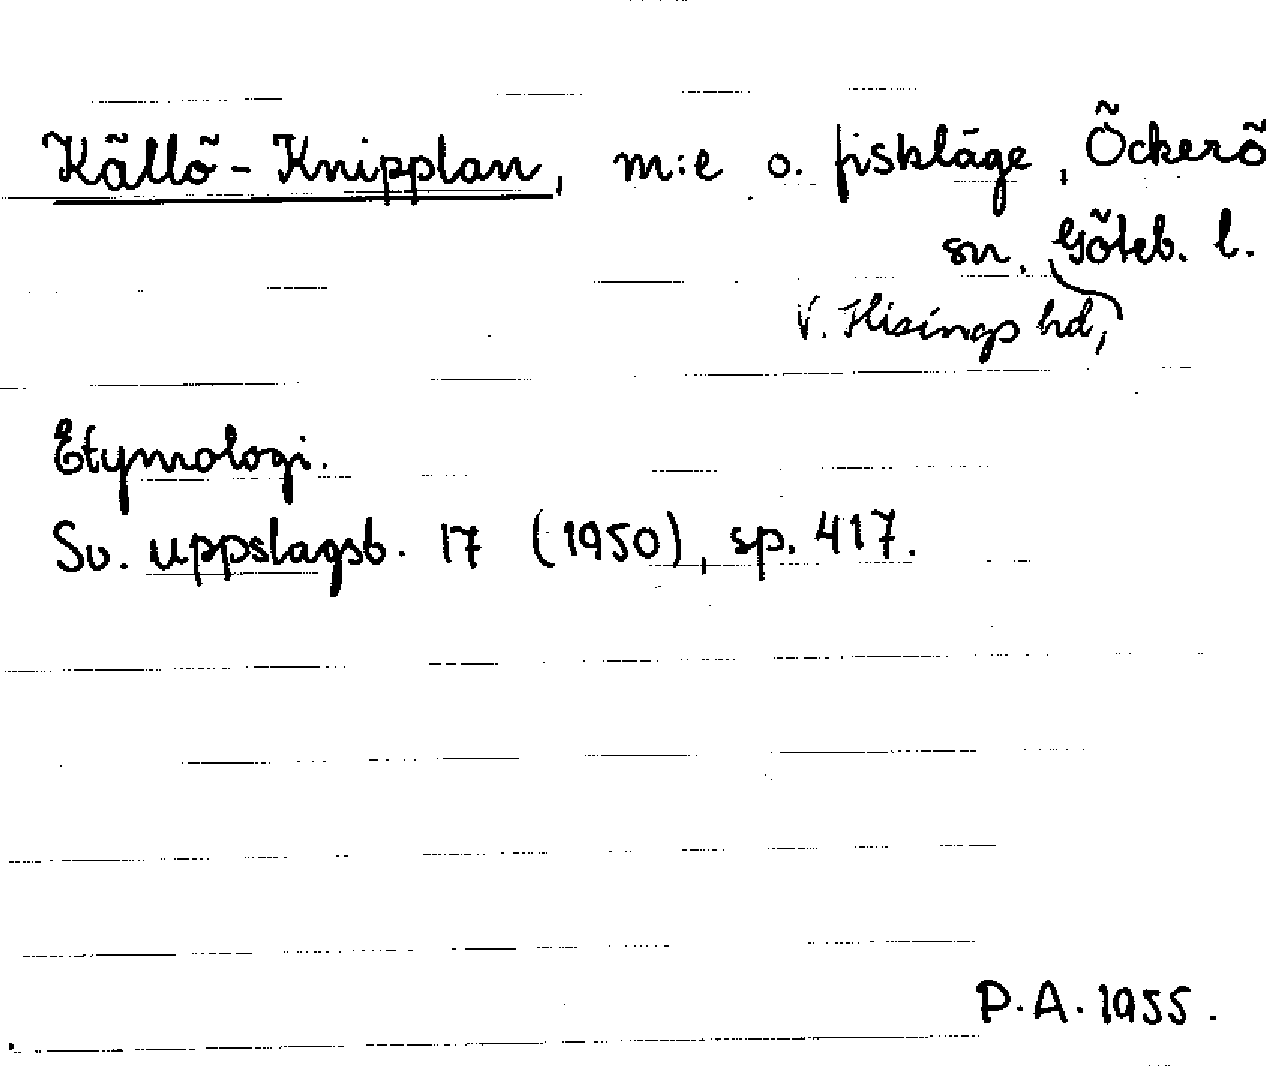 Källö-Knipplan, m:e o. fiskläge, Öckerö
sn. Göteb. l.
V. Hisings hd,
Etymologi.
Sv. uppslagsb. 17 (1950), sp. 417.
P.A. 1955.